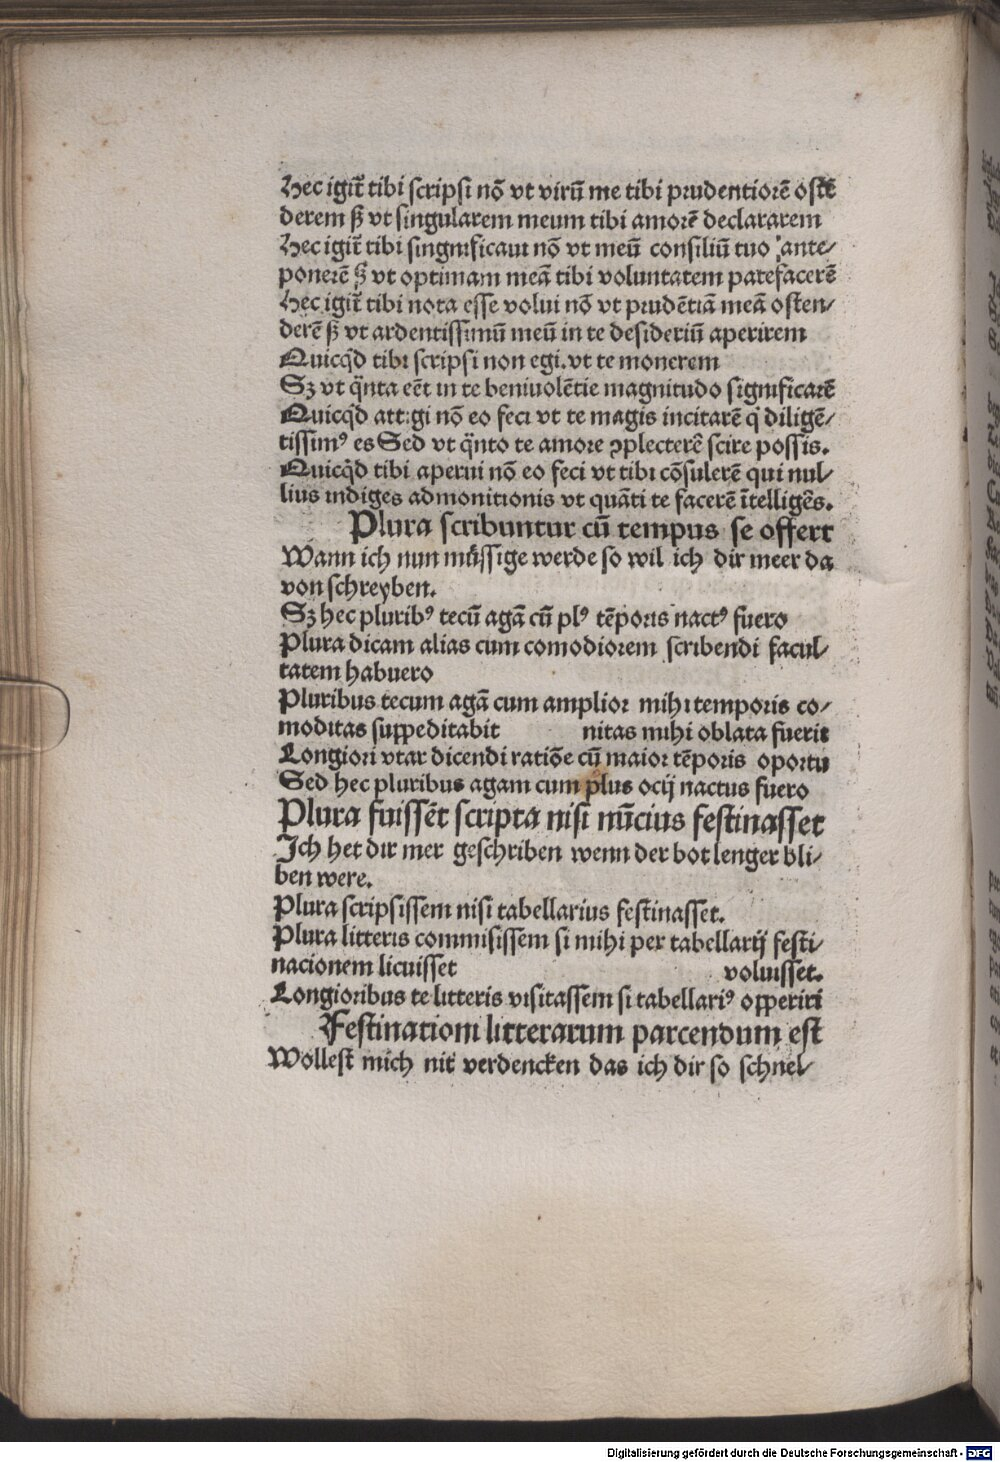 Hec igit̃ tibi scripsi nõ vt virũ me tibi prudentiorẽ ostẽ
derem sꝫ vt singularem meum tibi amorẽ declararem
Hec igit̃ tibi singnificaui nõ vt meũ consiliũ tuo ante/
ponerẽ sꝫ vt optimam meã tibi voluntatem patefacerẽ
Hec igit̃ tibi nota esse volui nõ vt prudẽtiã meã osten/
derẽ sꝫ vt ardentissimũ meũ in te desideriũ aperirem
Quicq̃d tibi scripsi non egi. vt te monerem
Sꝫ vt q̃nta eẽt in te beniuolẽtie magnitudo significarẽ
Quicq̃d attigi nõ eo feci vt te magis incitarẽ q̇ diligẽ/
tissimꝰ es Sed vt q̃nto te amore ꝯplecterẽ scire possis.
Quicq̃d tibi aperui nõ eo feci vt tibi cõsulerẽ qui nul/
lius indiges admonitionis vt quãti te facerẽ ĩtelligẽs.
Plura scribuntur cũ tempus se offert
Wann ich nun mu̇ssige werde so wil ich dir meer da
von schreyben.
Sꝫ hec pluribꝰ tecũ agã cũ plꝰ tẽporis nactꝰ fuero
Plura dicam alias cum comodiorem scribendi facul/
tatem habuero
Pluribus tecum agã cum amplior mihi temporis co/
moditas suppeditabit nitas mihi oblata fuerit
Longiori vtar dicendi ratiõe cũ maior tẽporis oportu
Sed hec pluribus agam cum plus ocij nactus fuero
Plura fuissẽt scripta nisi nũcius festinasset
Ich het dir mer geschriben wenn der bot lenger bli/
ben were.
Plura scripsissem nisi tabellarius festinasset.
Plura litteris commisissem si mihi per tabellarij festi/
nacionem licuisset voluisset.
Longioribus te litteris visitassem si tabellariꝰ opperiri
Festinationi litterarum parcendum est
Wollest mich nit verdencken das ich dir so schnel/
Digitalisierung gefördert durch die Deutsche Forschungsgemeinschaft - DFG